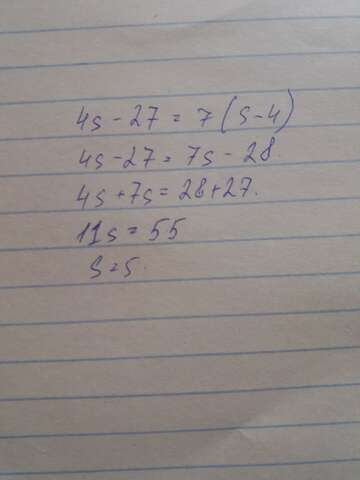 4s - 27 = 7 (s-4)
4s-27 = 7s - 28.
4s +7s = 28+27.
11s = 55
s=5.